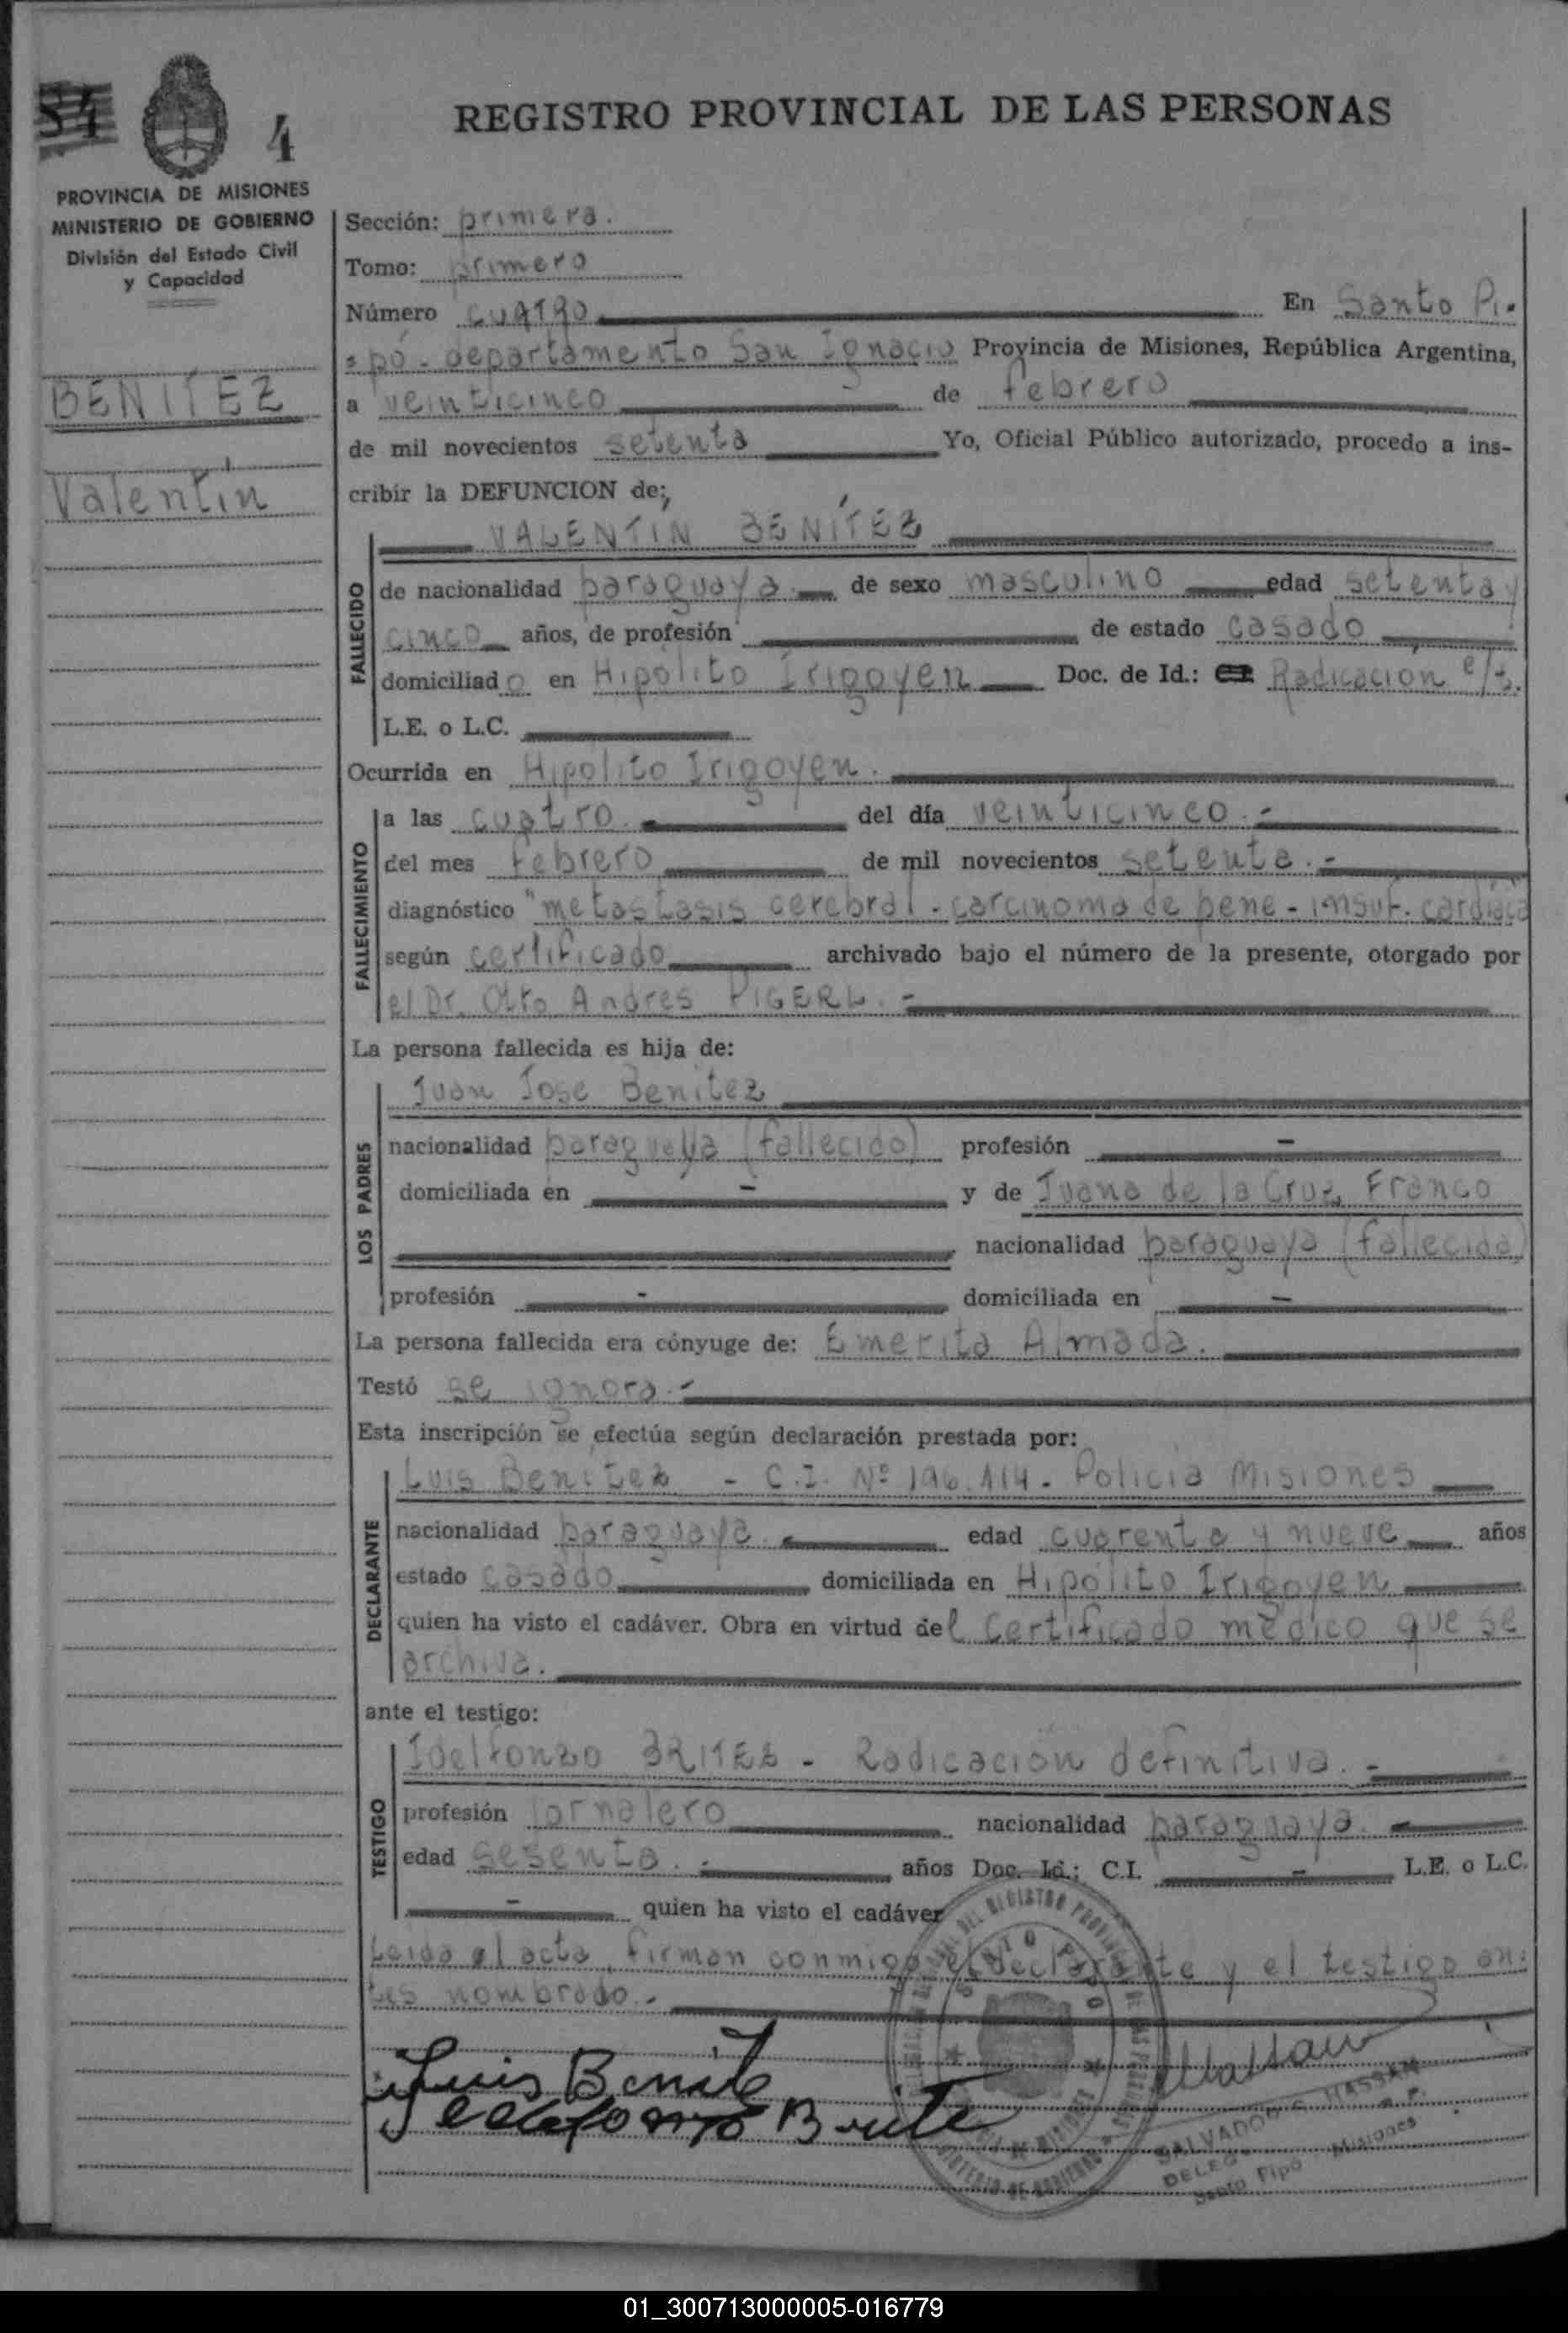 84
4
REGISTRO PROVINCIAL DE LAS PERSONAS
PROVINCIA DE MISIONES
MINISTERIO DE GOBIERNO
División del Estado Civil
y Capacidad
BENÍTEZ
Valentín
Sección: primera.
Tomo: primero
Número cuatro En Santo Pi-
pó - departamento San Ignacio Provincia de Misiones, República Argentina,
a veinticinco de febrero
de mil novecientos setenta Yo, Oficial Público autorizado, procedo a ins-
cribir la DEFUNCION de:
VALENTÍN BENÍTEZ
FALLECIDO
de nacionalidad paraguaya de sexo masculino edad setenta y
cinco años, de profesión de estado casado
domiciliado en Hipólito Irigoyen Doc. de Id.: Radicación e/t.
L.E. o L.C.
Ocurrida en Hipólito Irigoyen.
FALLECIMIENTO
a las cuatro del día veinticinco.-
del mes febrero de mil novecientos setenta.-
diagnóstico "metástasis cerebral - carcinoma de pene - insuf. cardíaca
según certificado archivado bajo el número de la presente, otorgado por
el Dr. Otto Andres PIGERL.-
La persona fallecida es hija de:
LOS PADRES
Juan José Benítez
nacionalidad paraguaya (fallecido) profesión -
domiciliada en - y de Juana de la Cruz Franco
nacionalidad paraguaya (fallecida)
profesión - domiciliada en -
La persona fallecida era cónyuge de: Emerita Almada.
Testó se ignora.-
Esta inscripción se efectúa según declaración prestada por:
DECLARANTE
Luis Benítez - C.I. Nº 196.114 - Policía Misiones
nacionalidad paraguaya. edad cuarenta y nueve años
estado casado domiciliada en Hipólito Irigoyen
quien ha visto el cadáver. Obra en virtud del certificado médico que se
archiva.
ante el testigo:
TESTIGO
Idelfonzo BRITEZ - Radicación definitiva.-
profesión Jornalero nacionalidad paraguaya.
edad sesenta.- años Doc. Id.: C.I. - L.E. o L.C.
- quien ha visto el cadáver
Leida el acta, firman conmigo el declarante y el testigo an-
tes nombrado.-
Luis Benite
Idelfonzo Brite
SALVADOR HASSAN
Santo Pipó Misiones
01_300713000005-016779